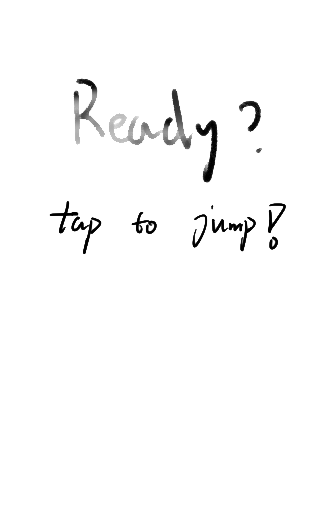 Ready?
tap to jump!